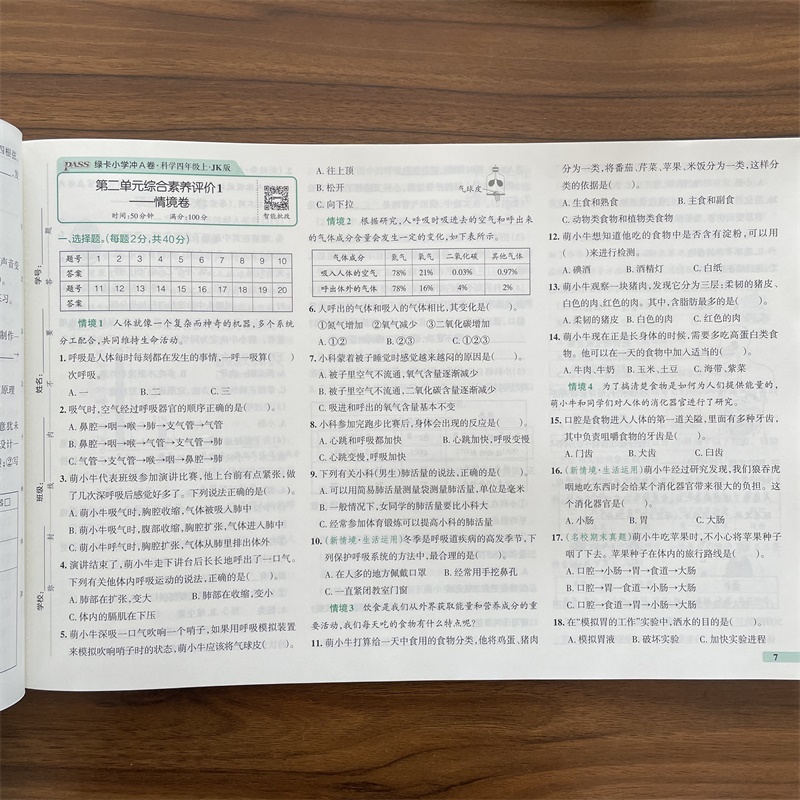 PASS 绿卡小学冲A卷·科学四年级上·JK版
第二单元综合素养评价1
——情境卷
时间:50分钟 满分:100分
智能批改
一、选择题。(每题2分,共40分)
题号 1 2 3 4 5 6 7 8 9 10
答案
题号 11 12 13 14 15 16 17 18 19 20
答案
情境1 人体就像一个复杂而神奇的机器,多个系统
分工配合,共同维持生命活动。
1.呼吸是人体每时每刻都在发生的事情,一呼一吸算( )
次呼吸。
A.一 B.二 C.三
2.吸气时,空气经过呼吸器官的顺序正确的是( )。
A.鼻腔→咽→喉→肺→支气管→气管
B.鼻腔→咽→喉→气管→支气管→肺
C.气管→支气管→喉→咽→鼻腔→肺
3.萌小牛代表班级参加演讲比赛,他上台前有点紧张,做
了几次深呼吸后感觉好多了。下列说法正确的是( )。
A.萌小牛吸气时,胸腔收缩,气体被吸入肺中
B.萌小牛吸气时,腹部收缩,胸腔扩张,气体进入肺中
C.萌小牛呼气时,胸腔扩张,气体从肺里排出体外
4.演讲结束了,萌小牛走下讲台后长长地呼出了一口气。
下列有关他体内呼吸运动的说法,正确的是( )。
A.肺部在扩张,变大 B.肺部在收缩,变小
C.体内的膈肌在下压
5.萌小牛深吸一口气吹响一个哨子,如果用呼吸模拟装置
来模拟吹响哨子时的状态,萌小牛应该将气球皮( )。
学号:
姓名:
班级:
学校:
A.往上顶
B.松开
C.向下拉
气球皮
情境2 根据研究,人呼吸时吸进去的空气和呼出来
的气体成分含量会发生一定的变化,如下表所示。
气体成分 氮气 氧气 二氧化碳 其他气体
吸入人体的空气 78% 21% 0.03% 0.97%
呼出体外的空气 78% 16% 4% 2%
6.人呼出的气体和吸入的气体相比,其变化是( )。
①氮气增加 ②氧气减少 ③二氧化碳增加
A.①② B.②③ C.①②③
7.小科蒙着被子睡觉时感觉越来越闷的原因是( )。
A.被子里空气不流通,氧气含量逐渐减少
B.被子里空气不流通,二氧化碳含量逐渐减少
C.吸进和呼出的氧气含量基本不变
8.小科参加完跑步比赛后,身体会出现的反应是( )。
A.心跳和呼吸都加快 B.心跳加快,呼吸变慢
C.心跳变慢,呼吸加快
9.下列有关小科(男生)肺活量的说法,正确的是( )。
A.可以用简易肺活量测量袋测量肺活量,单位是毫米
B.一般情况下,女同学的肺活量要比小科大
C.经常参加体育锻炼可以提高小科的肺活量
10.(新情境·生活运用)冬季是呼吸道疾病的高发季节,下
列保护呼吸系统的方法中,最合理的是( )。
A.在人多的地方佩戴口罩 B.经常用手挖鼻孔
C.一直紧闭教室门窗
情境3 饮食是我们从外界获取能量和营养成分的重
要活动,我们每天吃的食物有什么特点呢?
11.萌小牛打算给一天中食用的食物分类,他将鸡蛋、猪肉
分为一类,将番茄、芹菜、苹果、米饭分为一类,这样分
类的依据是( )。
A.生食和熟食 B.主食和副食
C.动物类食物和植物类食物
12.萌小牛想知道他吃的食物中是否含有淀粉,可以用
( )来进行检测。
A.碘酒 B.酒精灯 C.白纸
13.萌小牛观察一块猪肉,发现它分为三层:柔韧的猪皮、
白色的肉、红色的肉。其中,含脂肪最多的是( )。
A.柔韧的猪皮 B.白色的肉 C.红色的肉
14.萌小牛现在正是长身体的时候,需要多吃高蛋白类食
物。他可以在一天的食物中加入适当的( )。
A.牛肉、牛奶 B.玉米、土豆 C.海带、紫菜
情境4 为了搞清楚食物是如何为人们提供能量的,
萌小牛和同学们对人体的消化器官进行了研究。
15.口腔是食物进入人体的第一道关隘,里面有多种牙齿,
其中负责咀嚼食物的牙齿是( )。
A.门齿 B.犬齿 C.臼齿
16.(新情境·生活运用)萌小牛经过研究发现,我们狼吞虎
咽地吃东西时会给某个消化器官带来很大的负担。这
个消化器官是( )。
A.小肠 B.胃 C.大肠
17.(名校期末真题)萌小牛吃苹果时,不小心将苹果种子
咽了下去。苹果种子在体内的旅行路线是( )。
A.口腔→小肠→胃→食道→大肠
B.口腔→胃→食道→小肠→大肠
C.口腔→食道→胃→小肠→大肠
18.在“模拟胃的工作”实验中,洒水的目的是( )。
A.模拟胃液 B.破坏实验 C.加快实验进程
7